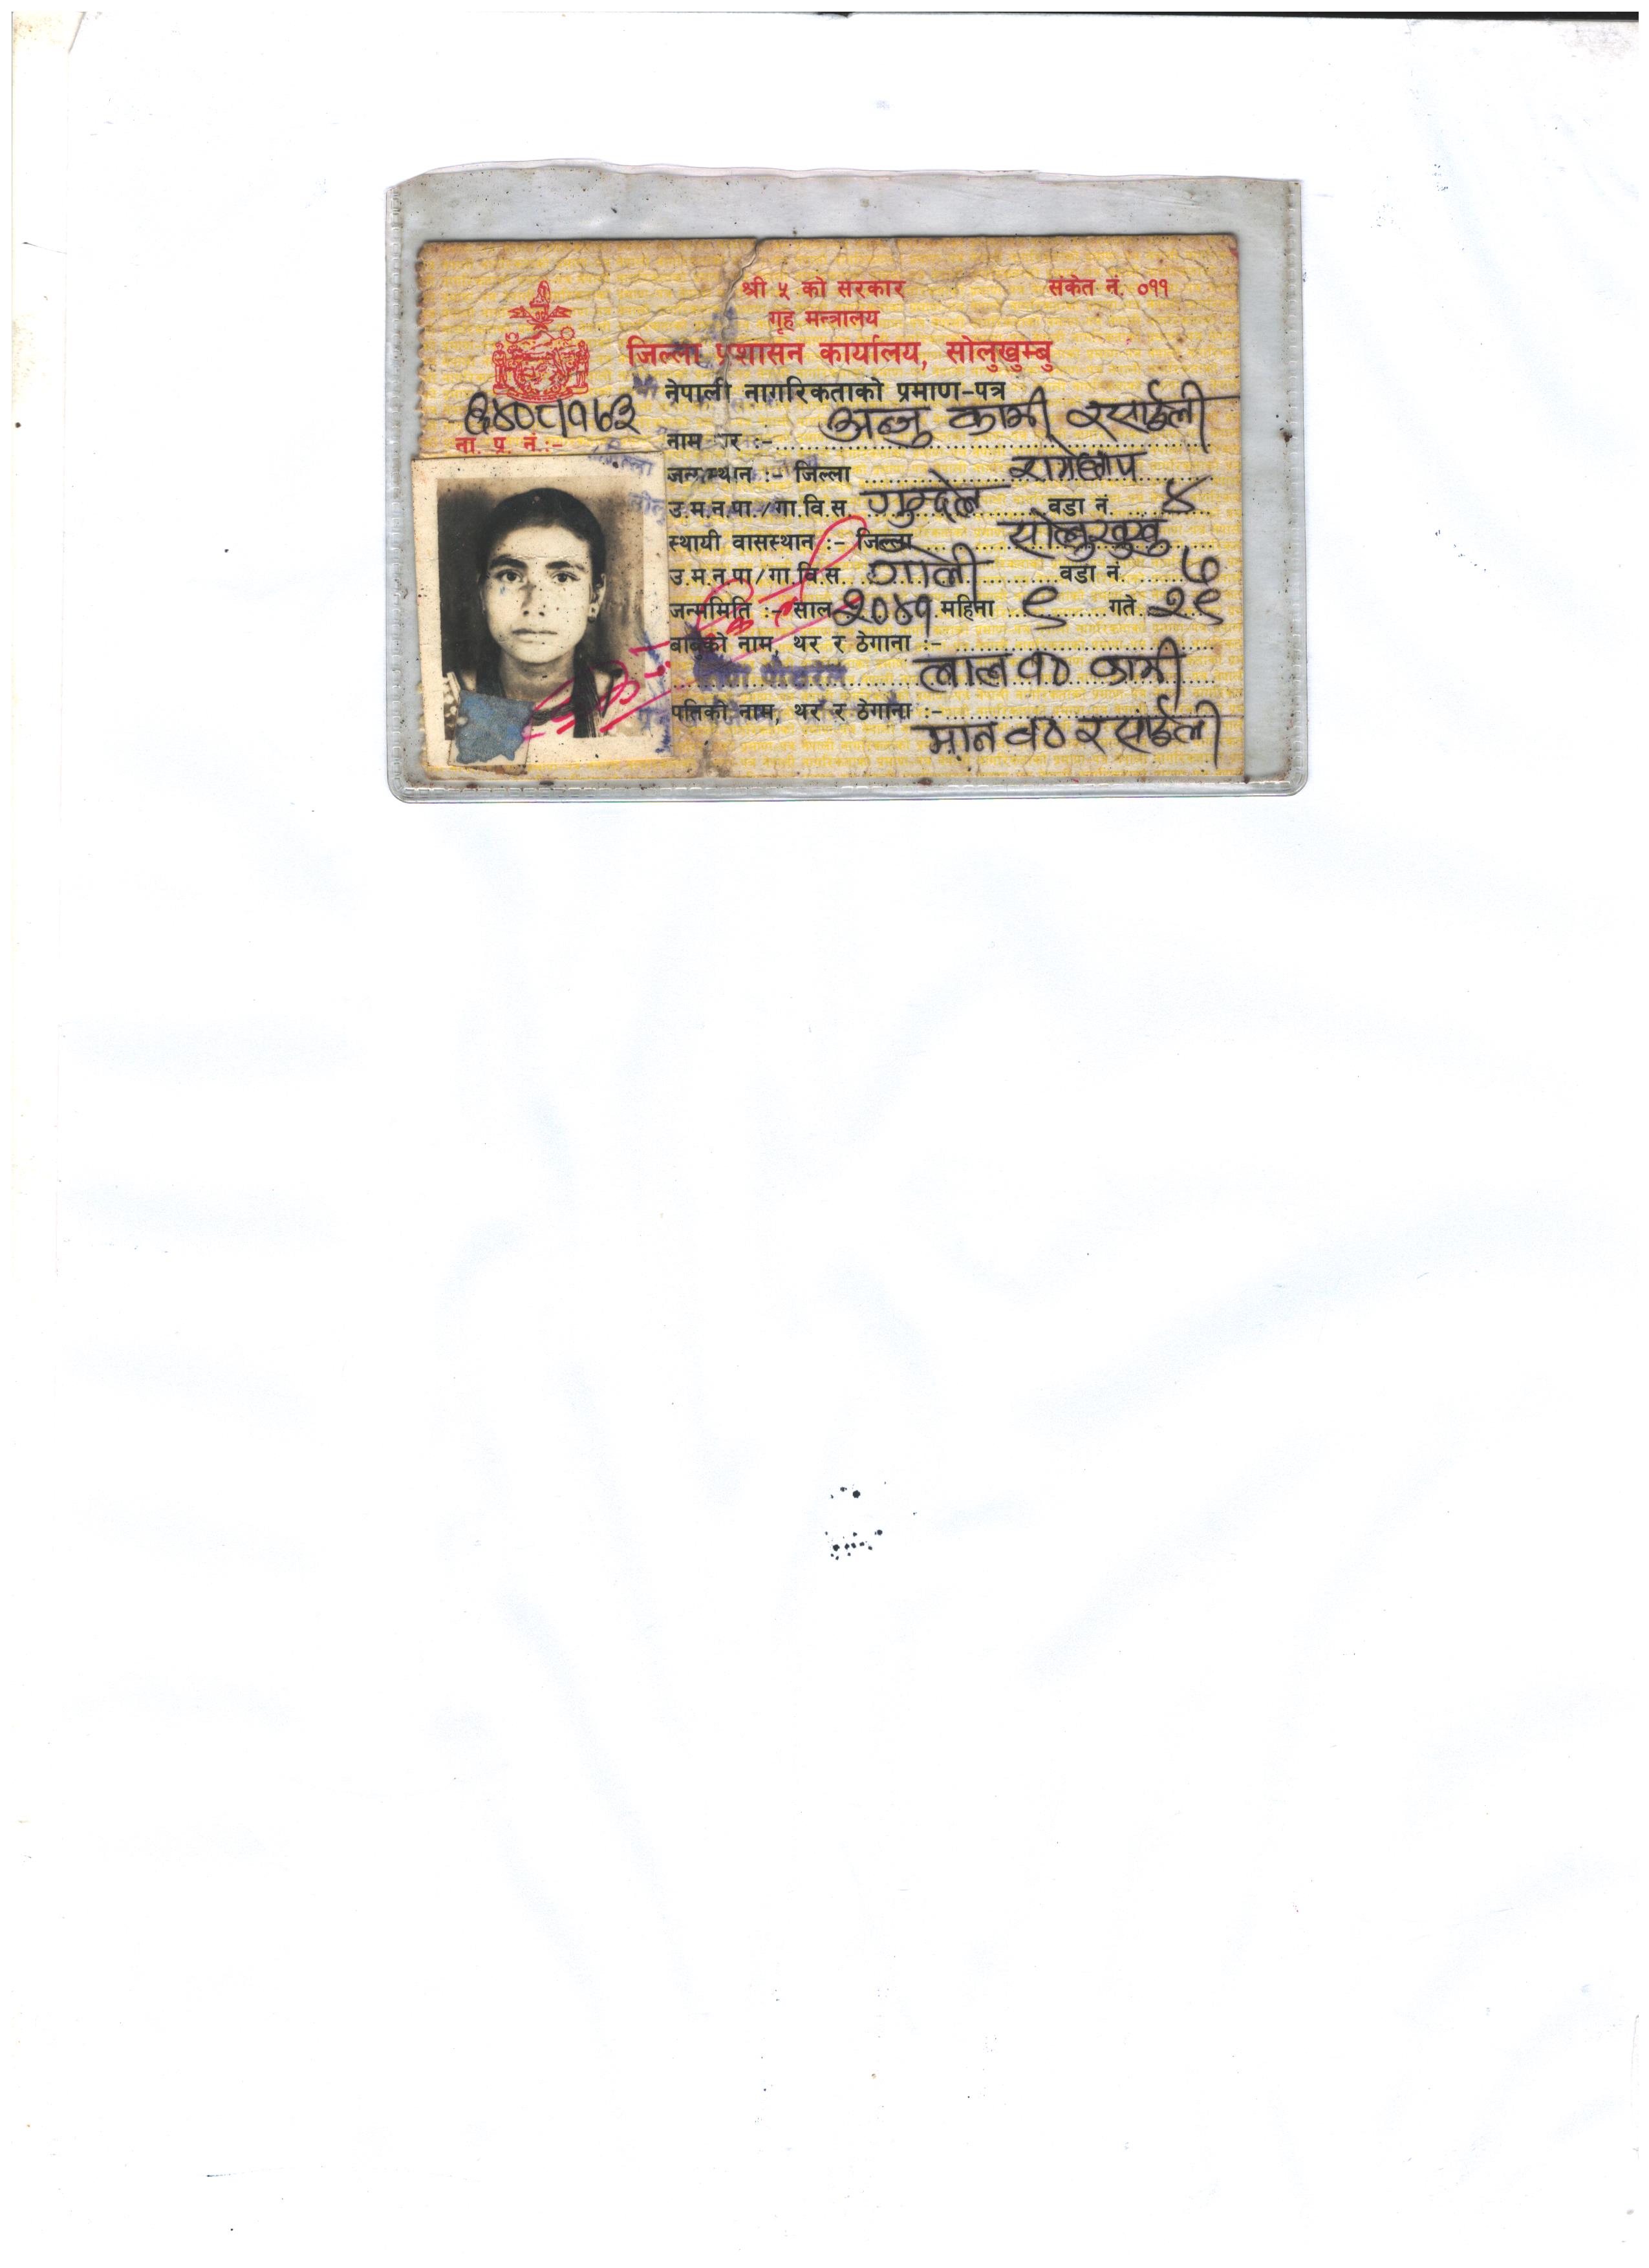 श्री ५ को सरकार
संकेत नं. ०११
गृह मन्त्रालय
जिल्ला प्रशासन कार्यालय, सोलुखुम्बु
नेपाली नागरिकताको प्रमाण-पत्र
ना. प्र. नं.:-
नाम थर :- अन्जु कामी रसाईली
जन्मस्थान :- जिल्ला रामेछाप
उ.म.न.पा./गा.वि.स. गुम्देल वडा नं. ४
स्थायी वासस्थान :- जिल्ला सोलुखुम्बु
उ.म.न.पा/गा.वि.स. गोली वडा नं. ७
जन्ममिति :- साल २०४१ महिना ९ गते २९
बाबुको नाम, थर र ठेगाना :-
लाल व० कामी
पतिको नाम, थर र ठेगाना :-
मान व० रसाईली